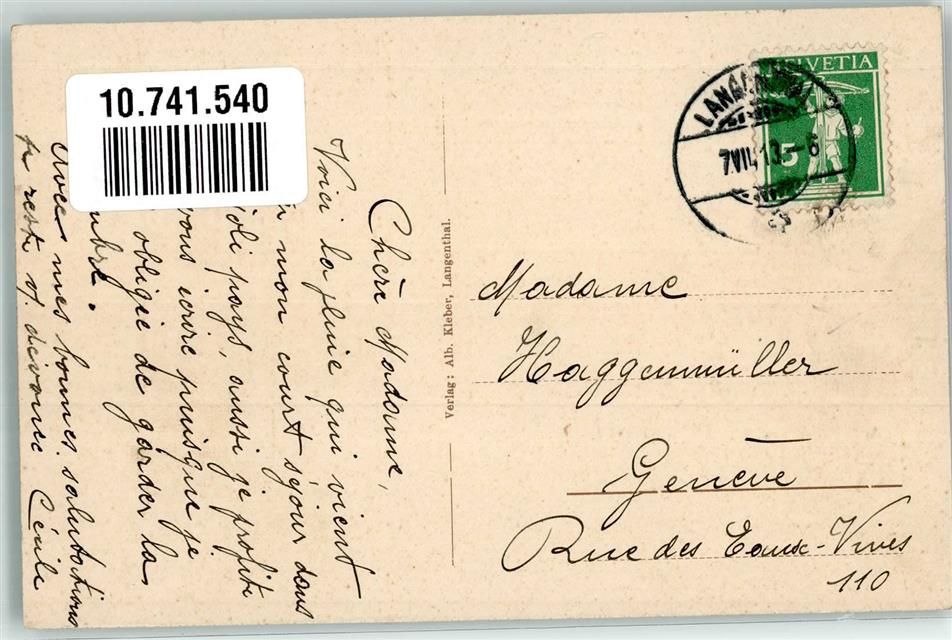 10.741.540
HELVETIA
5
LANGENTHAL
7.VII.13.-6
Chère Madame,
Voici la pluie qui vient
mon court séjour dans
joli pays, aussi je profite
vous écrire puisque je
obligée de garder la
Avec mes bonnes salutations
je reste v. dévouée Cécile
Verlag: Alb. Kleber, Langenthal.
Madame
Haggenmüller
Genève
Rue des Eaux-Vives
110